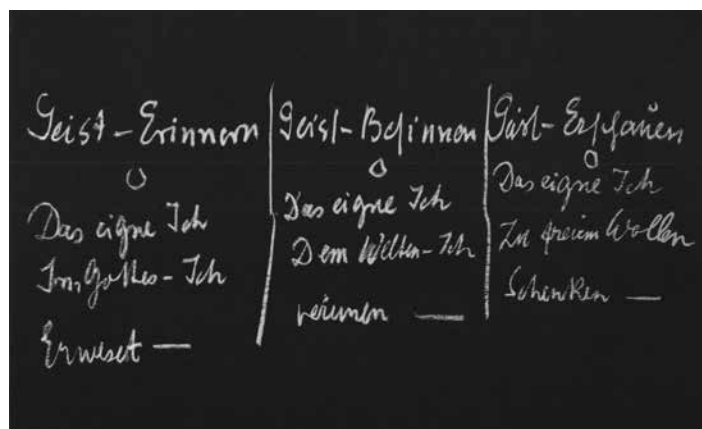 Geist-Erinnern
Das eigne Ich
Im Gottes-Ich
Erweset —
Geist-Besinnen
Das eigne Ich
Dem Welten-Ich
vereinen —
Geist-Erschauen
Das eigne Ich
Zu freiem Wollen
Schenken —